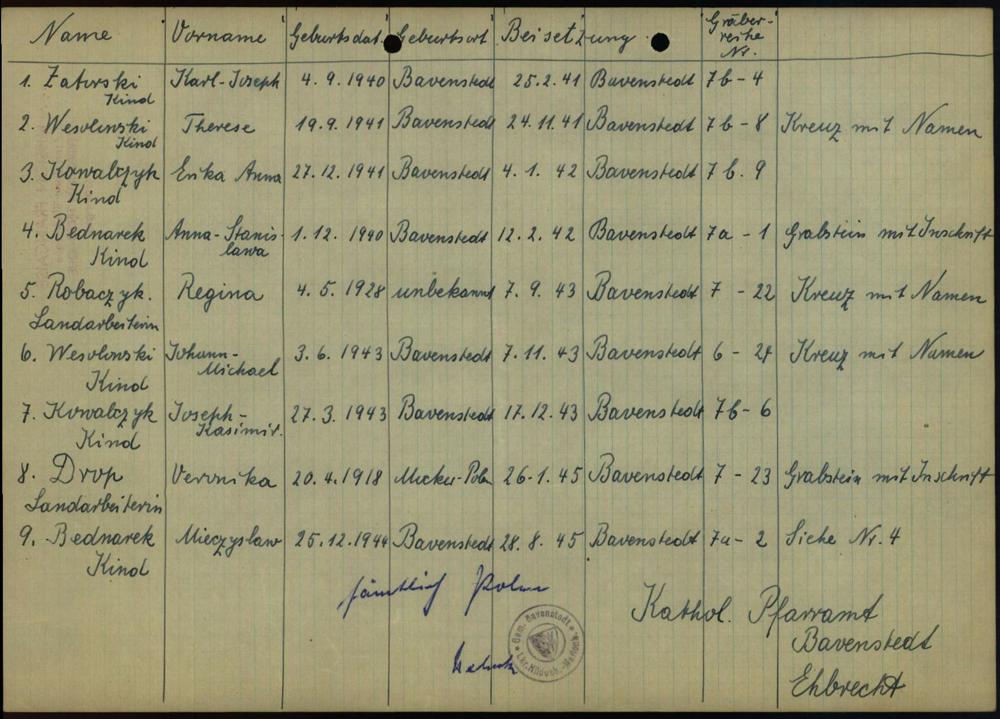 Name Vorname Geburtsdat. Geburtsort Beisetzung. Gräber-
reihe
Nr.
1. Zatorski Karl-Joseph 4.9.1940 Bavenstedt 25.2.41 Bavenstedt 7b-4
Kind
2. Wesolowski Therese 19.9.1941 Bavenstedt 24.11.41 Bavenstedt 7b-8 Kreuz mit Namen
Kind
3. Kowalczyk Erika Anna 27.12.1941 Bavenstedt 4.1.42 Bavenstedt 7b.9
Kind
4. Bednarek Anna-Stanis- 1.12.1940 Bavenstedt 12.2.42 Bavenstedt 7a-1 Grabstein mit Inschrift
Kind lawa
5. Robaczyk. Regina 4.5.1928 unbekannt 7.9.43 Bavenstedt 7-22 Kreuz mit Namen
Landarbeiterin
6. Wesolowski Johann- 3.6.1943 Bavenstedt 7.11.43 Bavenstedt 6-24 Kreuz mit Namen
Kind Michael
7. Kowalczyk Joseph- 27.3.1943 Bavenstedt 17.12.43 Bavenstedt 7b-6
Kind Kasimir.
8. Drop Veronika 20.4.1918 26.1.45 Bavenstedt 7-23 Grabstein mit Inschrift
Landarbeiterin
9. Bednarek Mieczyslaw 25.12.1944 Bavenstedt 28.8.45 Bavenstedt 7a-2 Siehe Nr. 4
Kind
sämtlich Polen
Kathol. Pfarramt
Bavenstedt
Ehbrecht
Gem. Bavenstedt